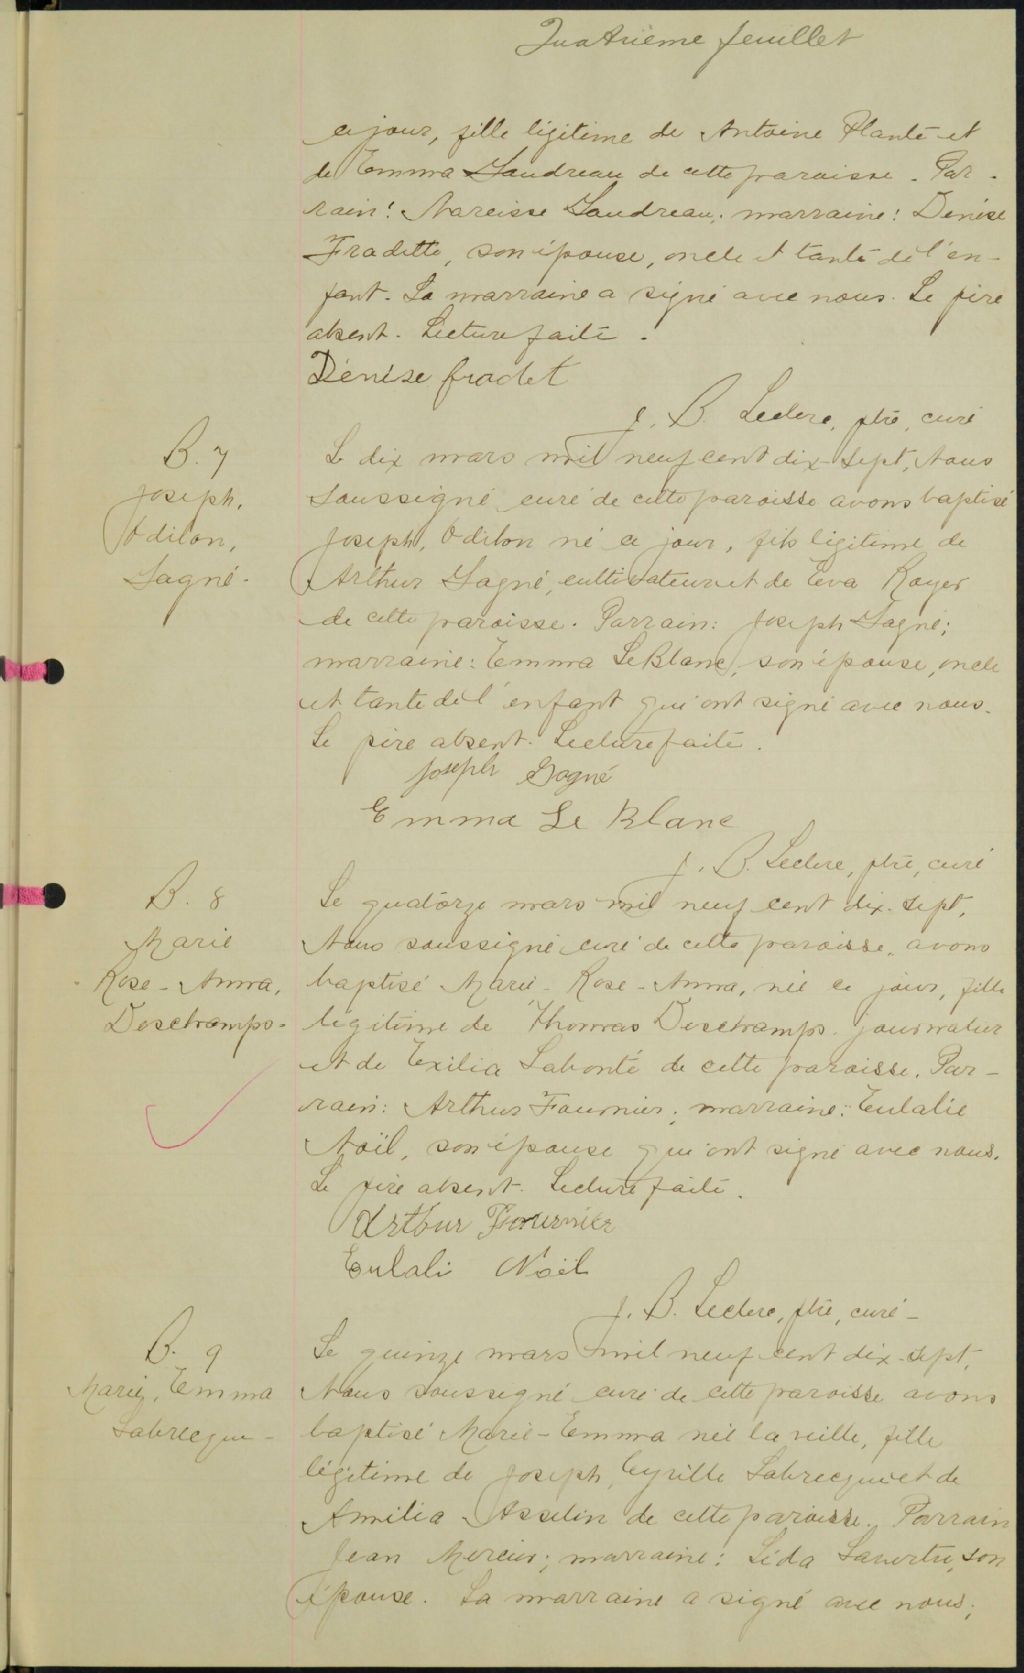 Quatrième feuillet
ce jour, fille légitime de Antoine Plante et
de Emma Gaudreau de cette paroisse - Par-
rain: Narcisse Gaudreau; marraine: Denise
Fradette, son épouse, oncle et tante de l'en-
fant. La marraine a signé avec nous. Le père
absent. Lecture faite.
Dénise fradet
J. B. Leclerc, ptre, curé
B. 7
Joseph,
Odilon,
Gagné.
Le dix mars mil neuf cent dix-sept, Nous
soussigné curé de cette paroisse avons baptisé
Joseph, Odilon né ce jour, fils légitime de
Arthur Gagné, cultivateur et de Eva Royer
de cette paroisse. Parrain: Joseph Gagné;
marraine: Emma LeBlanc, son épouse, oncle
et tante de l'enfant qui ont signé avec nous.
Le père absent. Lecture faite.
Joseph Gagné
Emma Le Blanc
J. B. Leclerc, ptre, curé
B. 8
Marie
Rose-Anna,
Deschamps-
Le quatorze mars mil neuf cent dix-sept,
Nous soussigné curé de cette paroisse, avons
baptisé Marie-Rose-Anna, née ce jour, fille
légitime de Thomas Deschamps journalier
et de Exilia Labonté de cette paroisse. Par-
rain: Arthur Fournier; marraine: Eulalie
Noël, son épouse qui ont signé avec nous.
Le père absent. Lecture faite.
Arthur Fournier
Eulali Noël
J. B. Leclerc, ptre, curé-
B. 9
Marie, Emma
Labrecque-
Le quinze mars mil neuf cent dix-sept,
Nous soussigné curé de cette paroisse avons
baptisé Marie-Emma née la veille, fille
légitime de Joseph, Cyrille Labrecque et de
Amilia Asselin de cette paroisse. Parrain
Jean Mercier; marraine: Léda Lavertu, son
épouse. La marraine a signé avec nous;